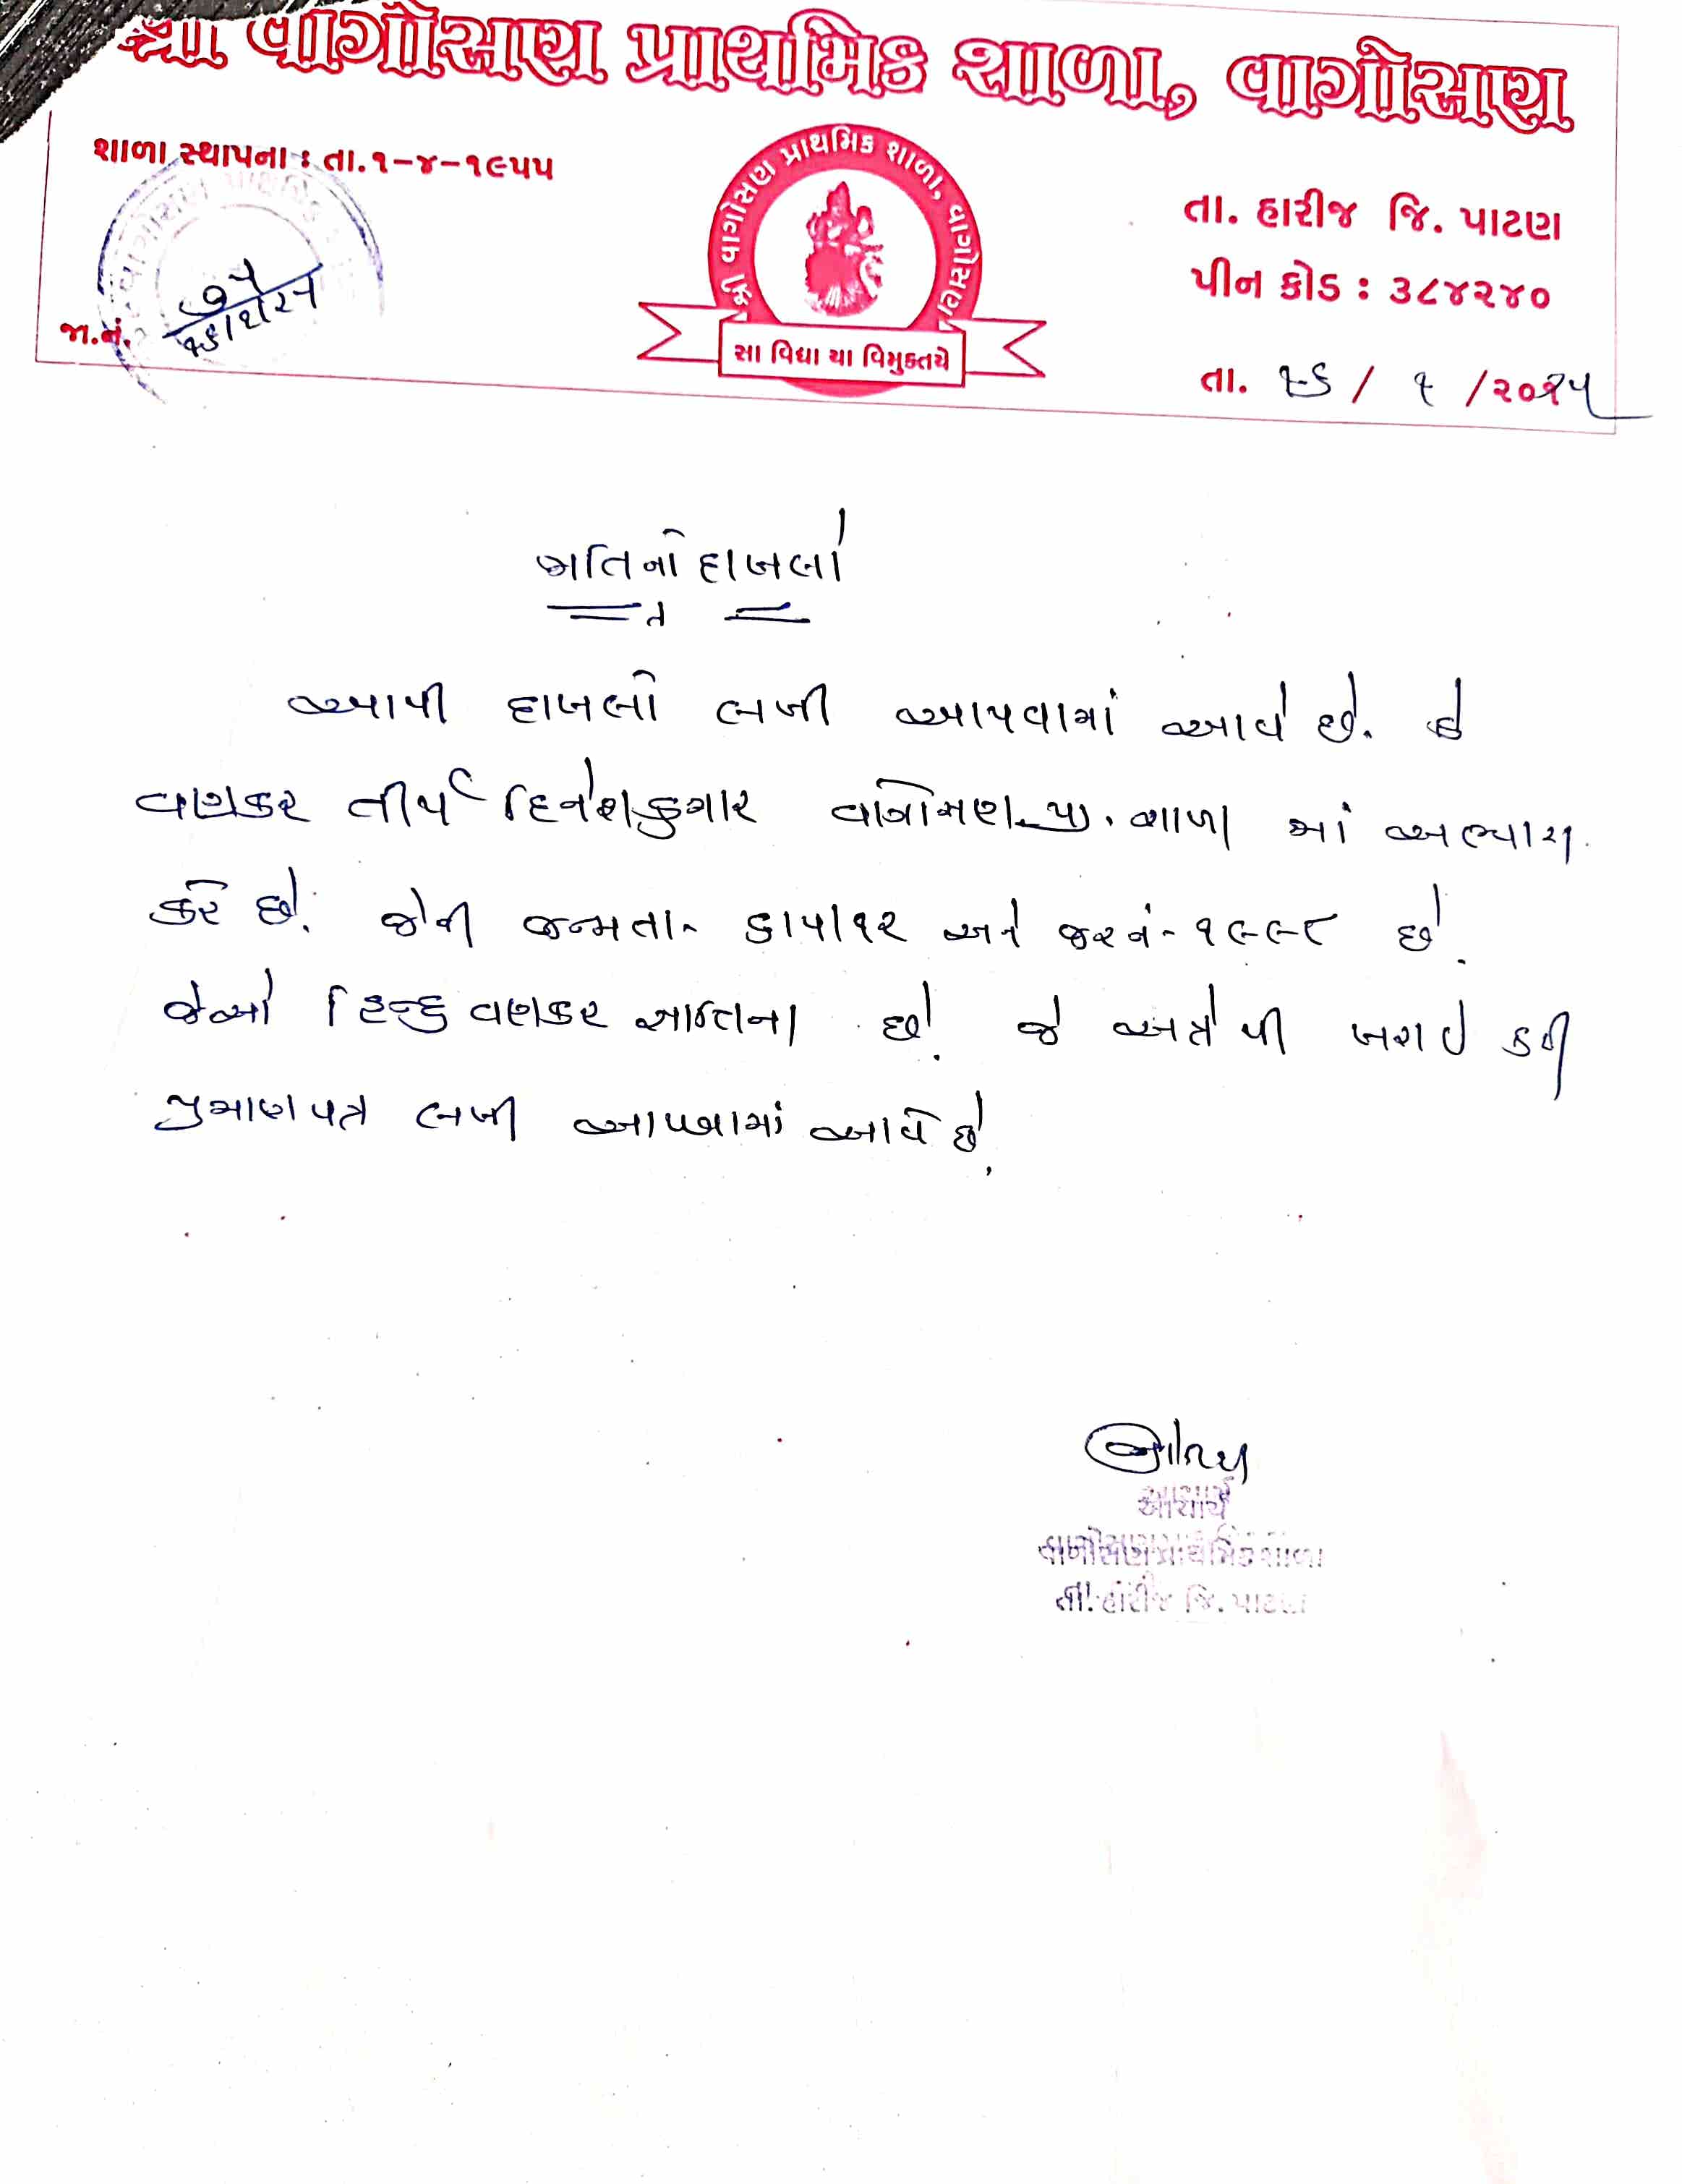 શ્રી વાગોસણ પ્રાથમિક શાળા, વાગોસણ
શાળા સ્થાપના : તા.૧-૪-૧૯૫૫
શ્રી વાગોસણ પ્રાથમિક શાળા, વાગોસણ
સા વિદ્યા યા વિમુક્તયે
તા. હારીજ જિ. પાટણ
પીન કોડ : ૩૮૪૨૪૦
જા.નં.
તા. ૧૬ / ૧ /૨૦૨૫
જાતિનો દાખલો
આથી દાખલો લખી આપવામાં આવે છે. કે
વણકર તીર્થ દિનેશકુમાર વાગોસણ પ્રા. શાળા માં અભ્યાસ
કરે છે. જેની જન્મતા- ૬/૫/૧૨ અને જરનં- ૧૯૯૮ છે.
જેઓ હિન્દુ વણકર જાતિના છે. જે અત્રેથી ખરાઈ કરી
પ્રમાણપત્ર લખી આપવામાં આવે છે.
આચાર્ય
વાગોસણ પ્રાથમિક શાળા
તા. હારીજ જિ. પાટણ